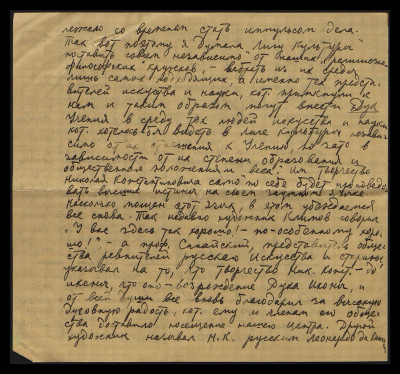 лежало со временем стать импульсом дела.
Так вот поэтому я думала Лигу Культуры
поставить совсем "независимо" от наших религиозно-
философских кружков, – выбрать из их среды
лишь самых подходящих, а именно тех предста-
вителей искусства и науки, кот. примкнули к
нам и таким образом могут внести Дух
Учения в среду тех людей искусства и науки
кот. хотелось бы видеть в Лиге Культуры независ-
симо от их отношения к Учению, но зато в
зависимости от их степени образования и
общественного положения и веса. Им творчество
Николая Константиновича само по себе будет проповедо-
вать высшие истины на своем
насколько мощен этот язык, в этом убеждаемся
все снова. Так недавно художник Климов говорил
"У вас здесь так хорошо! – по-особенному хоро-
шо!" – а проф. представитель общес-
тва ревнителей русского Искусства и старины
указывал на то, что творчество Ник. Конст. – до
иконы, что оно – возрождение Духа Иконы, и
от всей души все вновь благодарил за высокую
духовную радость, кот. ему и членам его общес-
тва доставило посещение нашего центра. Другой
художник называл Н.К. русским Леонардо да Винчи